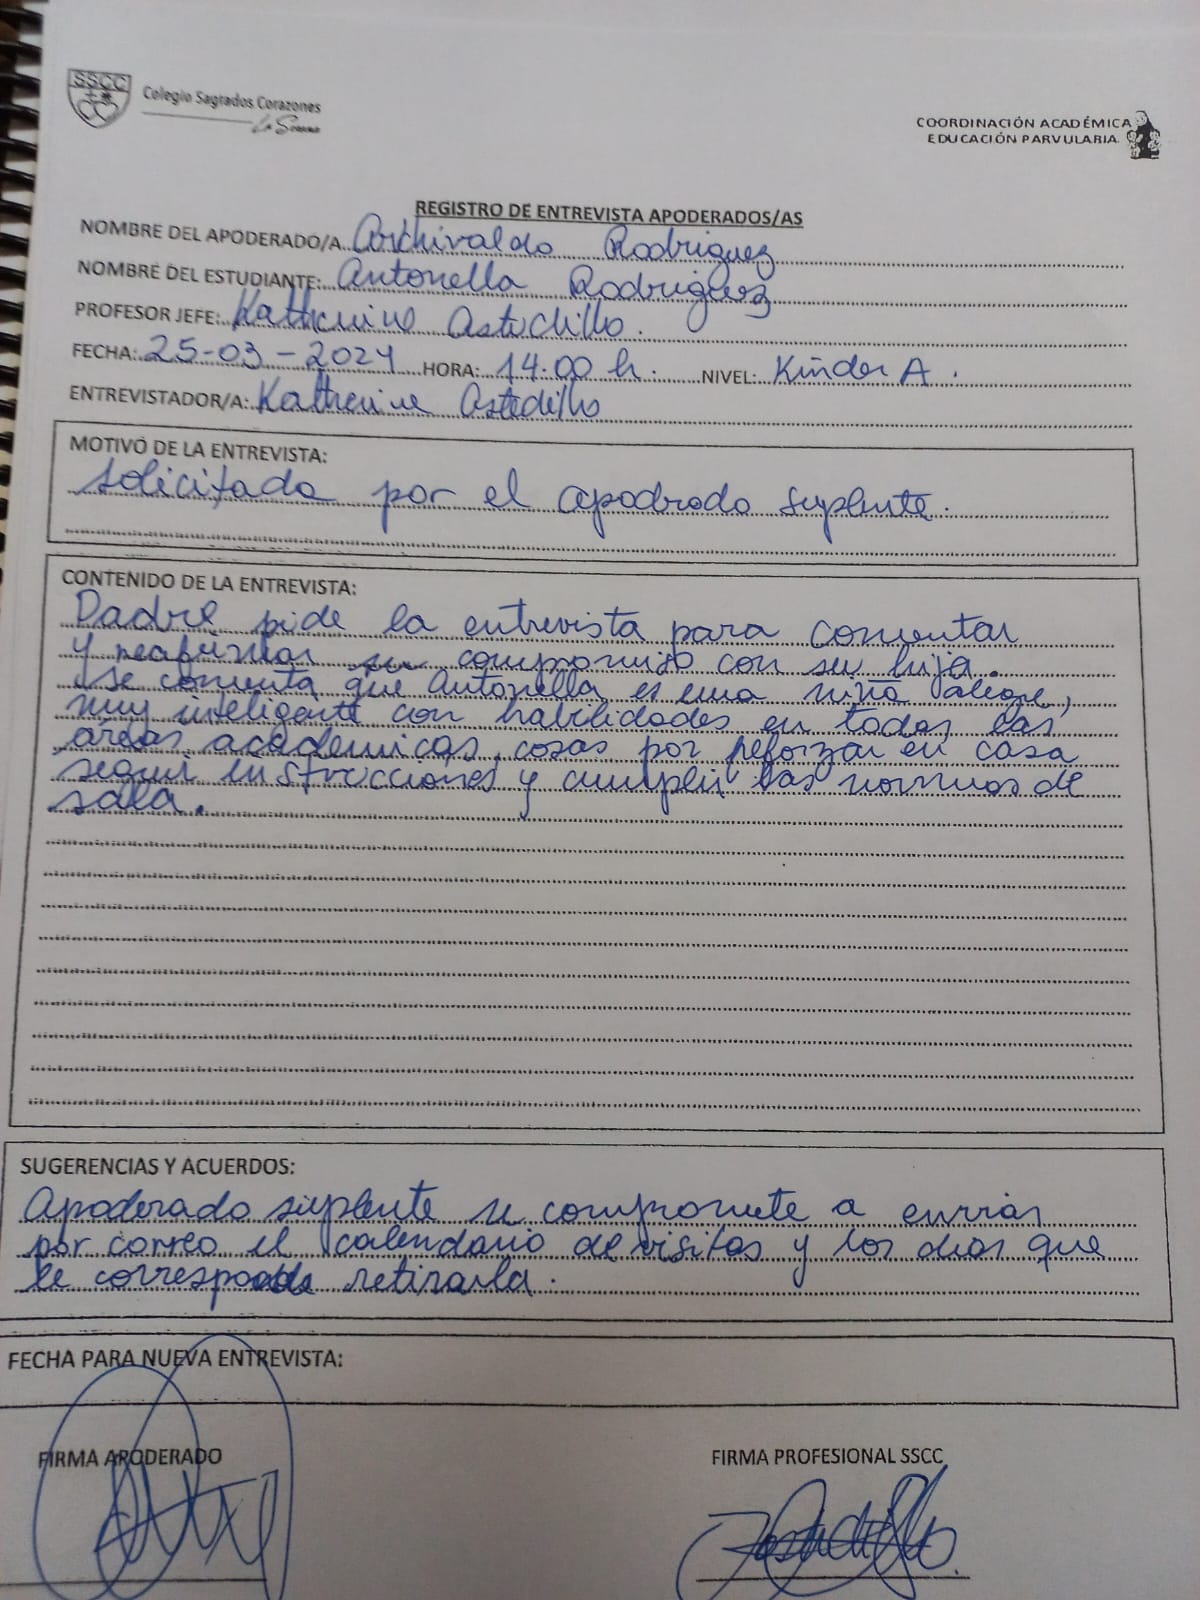 SSCC
Colegio Sagrados Corazones
La Serena
COORDINACIÓN ACADÉMICA
EDUCACIÓN PARVULARIA
REGISTRO DE ENTREVISTA APODERADOS/AS
NOMBRE DEL APODERADO/A Archivaldo Rodriguez
NOMBRE DEL ESTUDIANTE: Antonella Rodriguez
PROFESOR JEFE: Katherine Astudillo.
FECHA: 25-03-2024 HORA: 14:00 h. NIVEL: Kinder A.
ENTREVISTADOR/A: Katherine Astudillo
MOTIVO DE LA ENTREVISTA:
Solicitada por el apodrado suplente.
CONTENIDO DE LA ENTREVISTA:
Padre pide la entrevista para comentar
y reafirmar su compromiso con su hija.
Se comenta que Antonella es una niña alegre,
muy inteligente con habilidades en todas las
áreas académicas, cosas por reforzar en casa
seguir instrucciones y cumplir las normas de
sala.
SUGERENCIAS Y ACUERDOS:
Apoderado suplente se compromete a enviar
por correo el calendario de visitas y los dias que
le corresponde retirarla.
FECHA PARA NUEVA ENTREVISTA:
FIRMA APODERADO
FIRMA PROFESIONAL SSCC